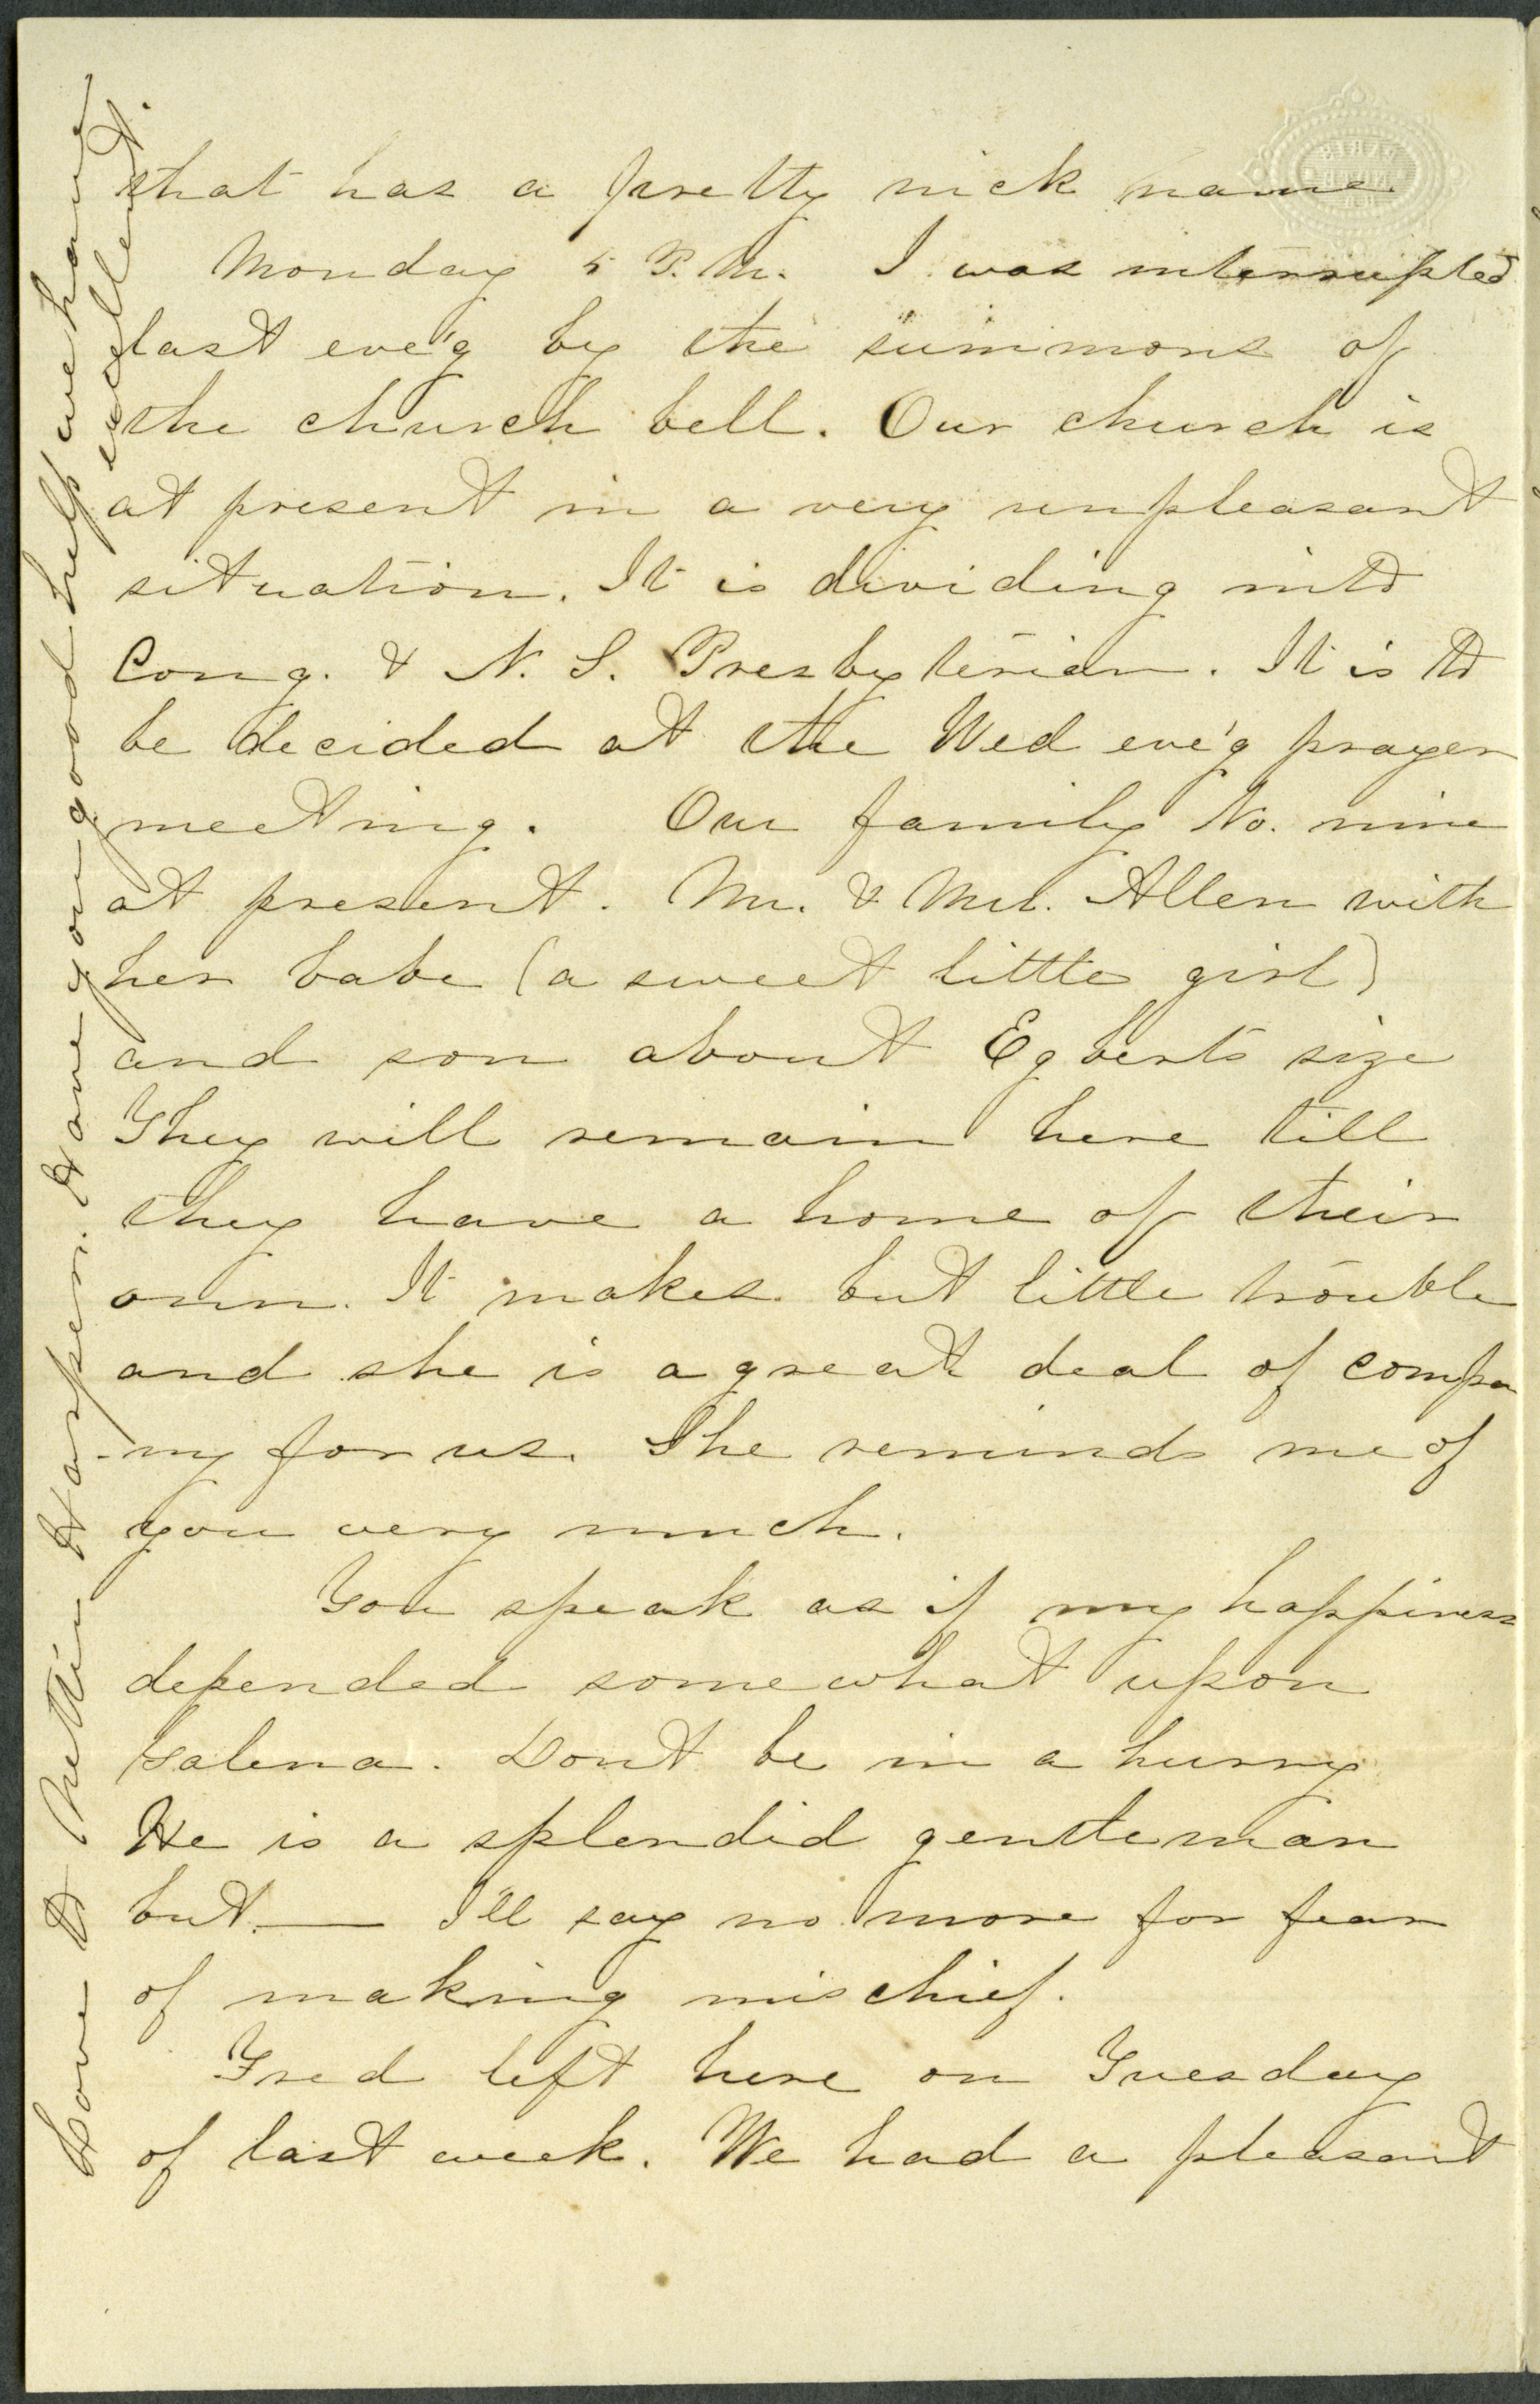 that has a pretty nick name
Monday 5 P.M. I was interrupted
last eve'g by the summons of
the church bell. Our church is
at present in a very unpleasant
situation. It is dividing into
Cong. & N. S. Presbyterian. It is to
be decided at the Wed eve'g prayer
meeting. Our family No. nine
at present. Mr. & Mrs. Allen with
her babe (a sweet little girl)
and son about Egberts size
They will remain here till
they have a home of their
own. It makes but little trouble
and she is a great deal of compa
-ny for us. She reminds me of
you very much.
You speak as if my happiness
depended somewhat upon
Galena. Dont be in a hurry
He is a splendid gentleman
but — I'll say no more for fear
of making mischief.
Fred left here on Tuesday
of last week. We had a pleasant
Love to Nettie Harper. Have you good help we have
excellent.